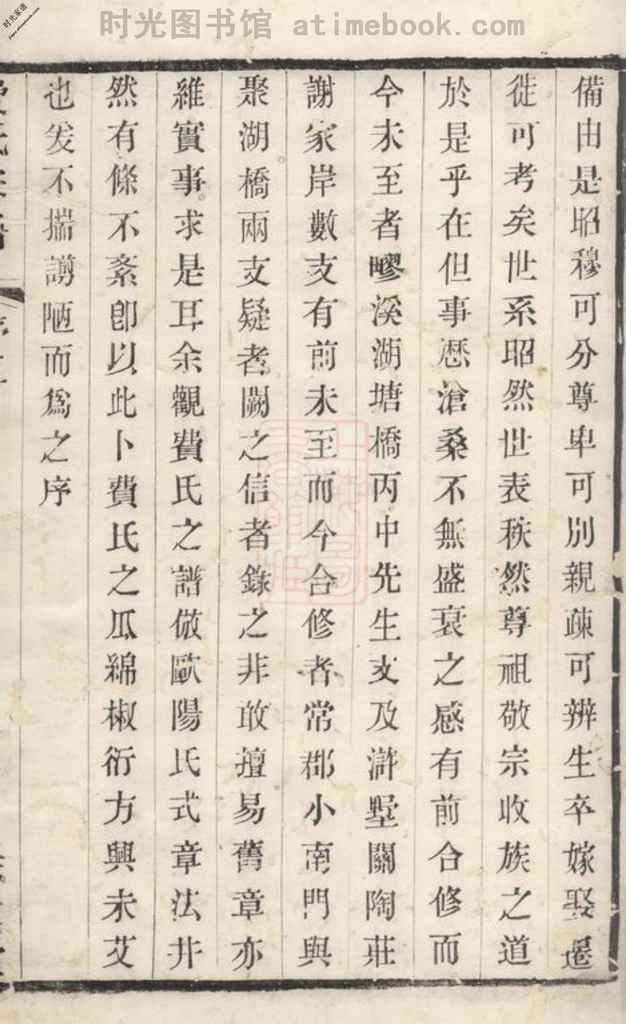 时光图书馆 atimebook.com
时光家谱
備由是昭穆可分尊卑可別親疎可辨生卒嫁娶遷
徙可考矣世系昭然世表秩然尊祖敬宗收族之道
於是乎在但事歷滄桑不無盛衰之感有前合修而
今未至者疁溪湖塘橋丙中先生支及滸墅關陶莊
謝家岸數支有前未至而今合修者常郡小南門與
聚湖橋兩支疑者闕之信者錄之非敢擅易舊章亦
維實事求是耳余觀費氏之譜倣歐陽氏式章法井
然有條不紊卽以此卜費氏之瓜綿椒衍方興未艾
也爰不揣謭陋而爲之序